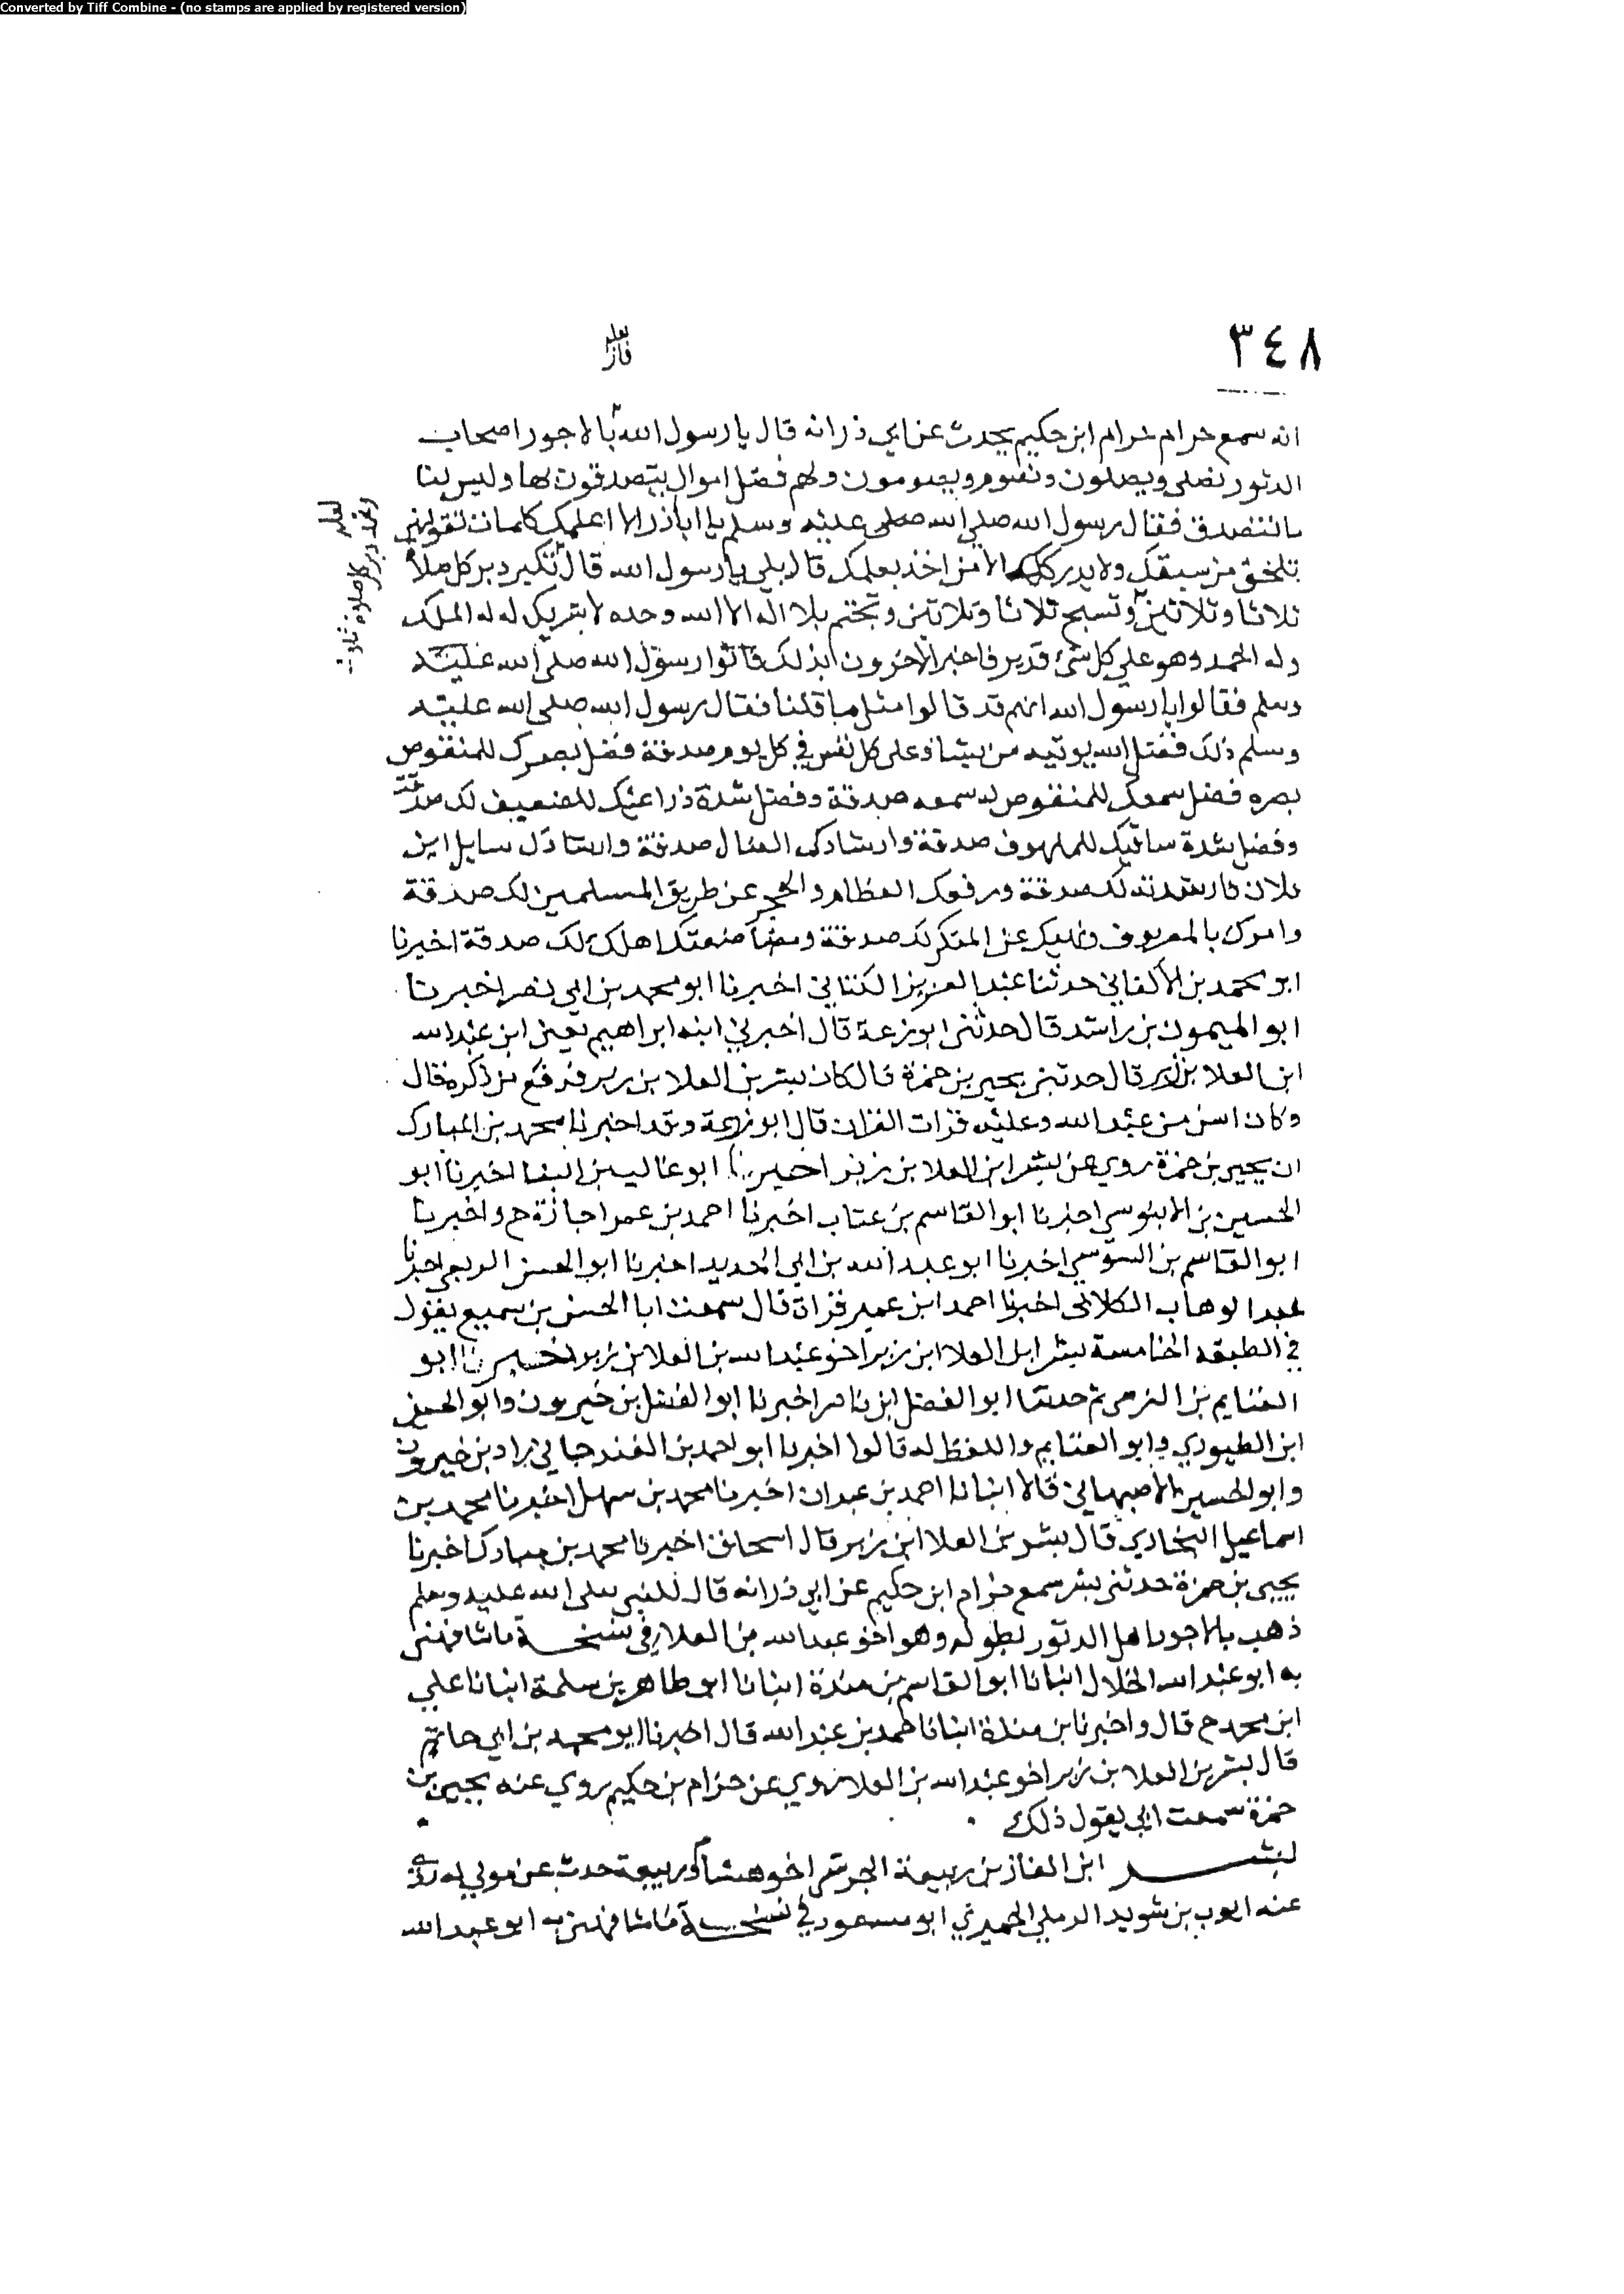 Converted by Tiff Combine - (no stamps are applied by registered version)
٣٤٨
لعله
فاز
انه سمع حرام حرام ابن حكيم يحدث عن ابي ذر انه قال يا رسول الله بالاجور اصحاب
الدثور نصلي ويصلون ونصوم ويصومون ولهم فضل اموال يتصدقون بها وليس لنا
ما نتصدق فقال رسول الله صلى الله صلى عليه وسلم يا ابا ذر الا اعلمك كلمات تقولهن
تلحق من سبقك ولا يدركك الا من اخذ بعملك قال بلى يا رسول الله قال تكبر دبر كل صلاة
لعله
وتحمد دبر كل صلاة ثلاث
ثلاثا وثلاثين وتسبح ثلاثا وثلاثين وتختم بلا اله الا الله وحده لا شريك له له الملك
وله الحمد وهو على كل شئ قدير فاخبر الاخرون بذلك فاتوا رسول الله صلى الله عليه
وسلم فقالوا يا رسول الله انهم قد قالوا مثل ما قلنا فقال رسول الله صلى الله عليه
وسلم ذلك فضل الله يوتيه من يشاء وعلى كل نفس في كل يوم صدقة فضل بصرك للمنقوص
بصره فضل سمعك للمنقوص له سمعه صدقة وفضل شدة ذراعيك للضعيف لك صدقة
وفضل شدة ساقيك للملهوف صدقة وارشادك الضال صدقة وارشادك سايل اين
فلان فارشدته لك صدقة ورفعك العظام والحجر عن طريق المسلمين لك صدقة
وامرك بالمعروف ونهيك عن المنكر لك صدقة ومباضعتك اهلك لك صدقة اخبرنا
ابو محمد بن الاكفاني حدثنا عبد العزيز الكتاني اخبرنا ابو محمد بن ابي نصر اخبرنا
ابو الميمون بن راشد قال حدثني ابو زرعة قال اخبرني ابنه ابراهيم يعني ابن عبد الله
ابن العلا بن زبر قال حدثني يحيى بن حمزة قال كان بشر بن العلا بن زبر فرفع من ذكره قال
وكان اسن من عبد الله وعليه قرات القران قال ابو زرعة وقد اخبرنا محمد بن المبارك
ان يحيى بن حمزة روي عن بشر ابن العلا بن زبر اخبرنا ابو غالب بن البنا اخبرنا ابو
الحسين بن الابنوسي اخبرنا ابو القاسم بن عتاب اخبرنا احمد بن عمر اجازة ح واخبرنا
ابو القاسم بن السوسي اخبرنا ابو عبد الله بن ابي الحديد اخبرنا ابو الحسن الربعي اخبرنا
عبد الوهاب الكلابي اخبرنا احمد ابن عمير قراة قال سمعت ابا الحسن بن سميع يقول
في الطبقه الخامسة بشر ابن العلا ابن زبر اخو عبد الله بن العلا بن زبر اخبرنا ابو
الغنايم بن النرسي ثم حدثنا ابو الفضل ابن ناصر اخبرنا ابو الفضل بن خيرون وابو الحسين
ابن الطيوري وابو الغنايم واللفظ له قالوا اخبرنا ابو احمد بن الغندجاني زاد بن خيرون
وابو الحسين الاصبهاني قالا انبانا احمد بن عبدان اخبرنا محمد بن سهل اخبرنا محمد بن
اسماعيل البخاري قال بشر بن العلا ابن زبر قال اسحاق اخبرنا محمد بن مبارك اخبرنا
يحيى بن حمزة حدثني بشر سمع حزام ابن حكيم عن ابي ذر انه قال للنبي صلى الله عليه وسلم
ذهب بالاجور اهل الدثور بطوله وهو اخو عبد الله بن العلا في نسخة ما شافهني
به ابو عبد الله الخلال انبانا ابو القاسم بن مندة انبانا ابو طاهر بن سلمة انبانا علي
ابن محمد ح قال واخبرنا بن مندة انبانا حمد بن عبد الله قال اخبرنا ابو محمد بن ابي حاتم
قال بشر بن العلا بن زبر اخو عبد الله بن العلا روي عن حزام بن حكيم روي عنه يحيى بن
حمزة سمعت ابي يقول ذلك
بشر ابن الغاز بن ربيعة الجرشي اخو هشام وربيعة حدث عن مولي له روى
عنه ايوب بن سويد الرملي الحميري ابو مسعود في نسخة ما شافهني به ابو عبد الله